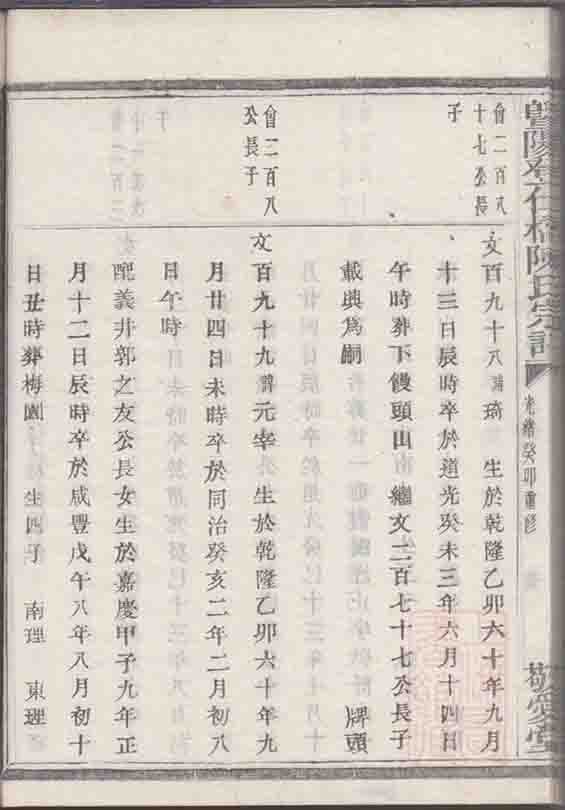 暨陽 仁橋陳氏宗譜
光緒癸卯重修
敬愛堂
會二百八
十七公長
子
文百九十八諱琦 生於乾隆乙卯六十年九月
十三日辰時卒於道光癸未三年六月十四日
午時葬下饅頭山 繼文二百七十七公長子
載興爲嗣 牌頭
會二百八
公長子
文百九十九諱元宰 生於乾隆乙卯六十年九
月廿四日未時卒於同治癸亥二年二月初八
日午時
配義井郭之友公長女生於嘉慶甲子九年正
月十二日辰時卒於咸豐戊午八年八月初十
日丑時葬梅園 生四子 南理 東理